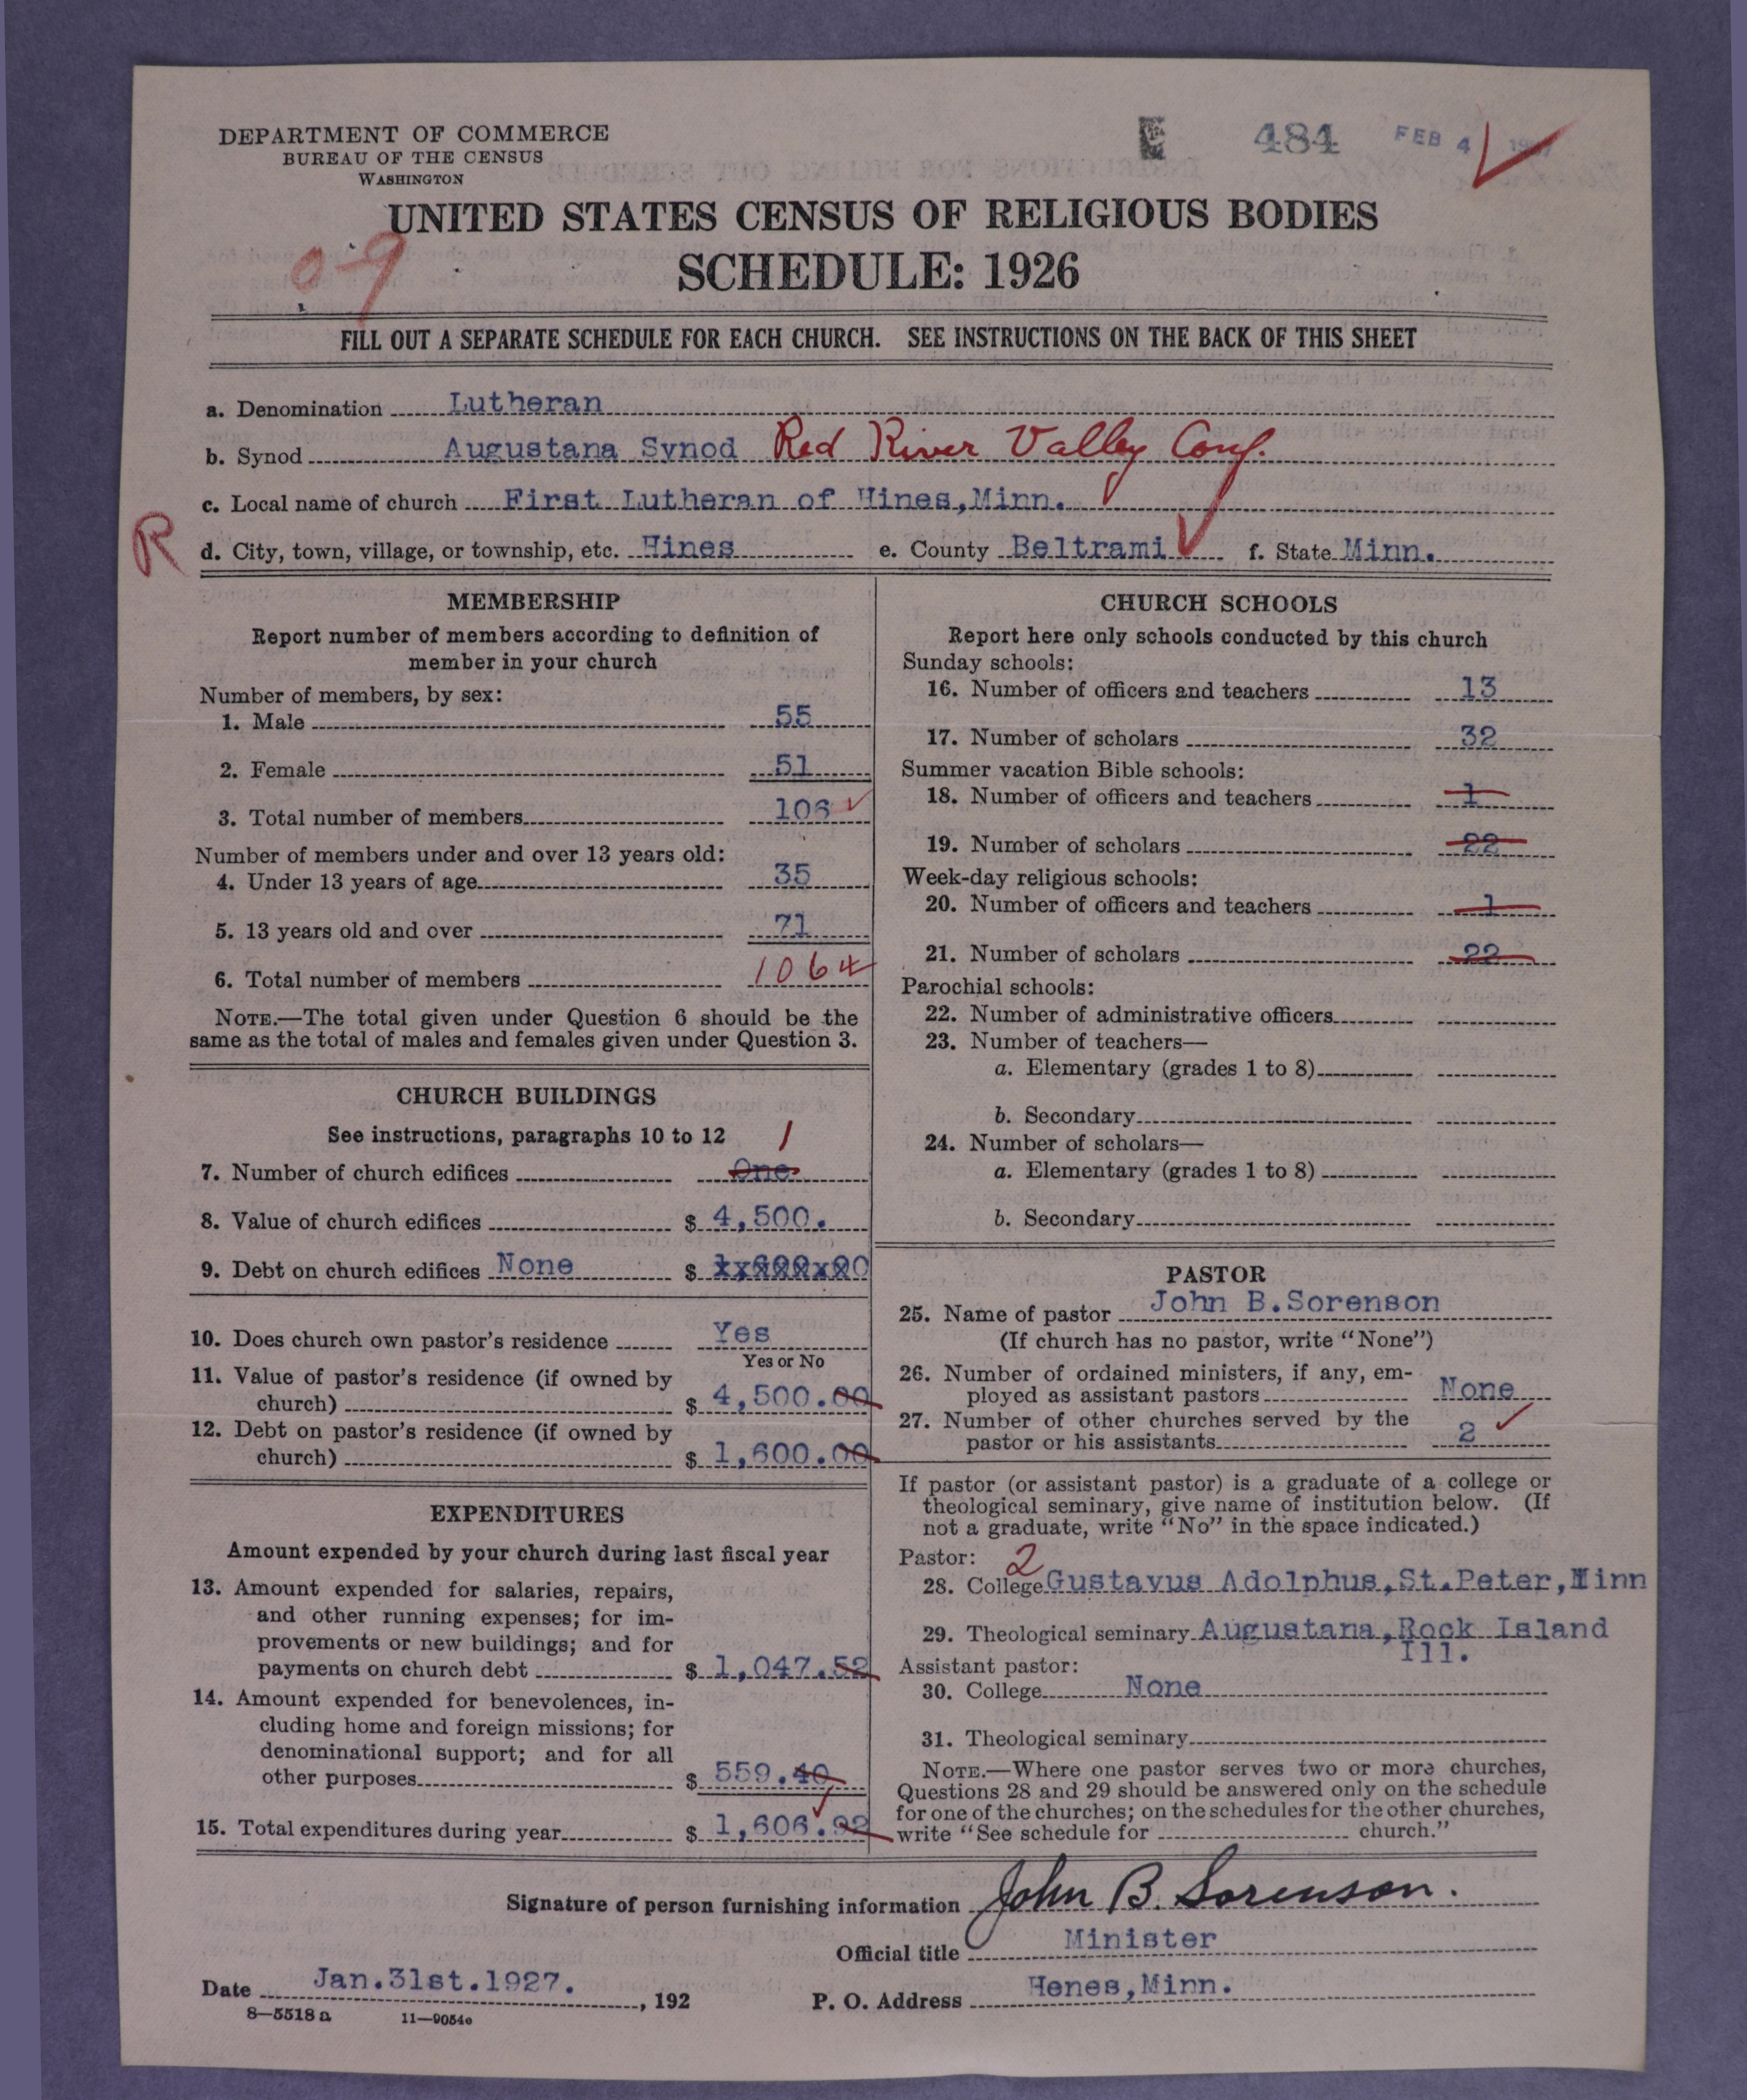 DEPARTMENT OF COMMERCE
BUREAU OF THE CENSUS
WASHINGTON
E 484 FEB 4 1927
UNITED STATES CENSUS OF RELIGIOUS BODIES
09
SCHEDULE: 1926
FILL OUT A SEPARATE SCHEDULE FOR EACH CHURCH. SEE INSTRUCTIONS ON THE BACK OF THIS SHEET
a. Denomination Lutheran
b. Synod Augustana Synod Red River Valley Conf.
c. Local name of church First Lutheran of Hines,Minn.
R
d. City, town, village, or township, etc. Hines e. County Beltrami f. State Minn.
MEMBERSHIP
Report number of members according to definition of
member in your church
Number of members, by sex:
1. Male 55
2. Female 51
3. Total number of members 106
Number of members under and over 13 years old:
4. Under 13 years of age 35
5. 13 years old and over 71
6. Total number of members 106
NOTE.—The total given under Question 6 should be the
same as the total of males and females given under Question 3.
CHURCH BUILDINGS
See instructions, paragraphs 10 to 12 1
7. Number of church edifices One
8. Value of church edifices $ 4,500.
9. Debt on church edifices None $
10. Does church own pastor's residence Yes
Yes or No
11. Value of pastor's residence (if owned by
church) $ 4,500.00
12. Debt on pastor's residence (if owned by
church) $ 1,600.00
EXPENDITURES
Amount expended by your church during last fiscal year
13. Amount expended for salaries, repairs,
and other running expenses; for im-
provements or new buildings; and for
payments on church debt $ 1,047.52
14. Amount expended for benevolences, in-
cluding home and foreign missions; for
denominational support; and for all
other purposes $ 559.40
15. Total expenditures during year $ 1,606.92
CHURCH SCHOOLS
Report here only schools conducted by this church
Sunday schools:
16. Number of officers and teachers 13
17. Number of scholars 32
Summer vacation Bible schools:
18. Number of officers and teachers 1
19. Number of scholars 22
Week-day religious schools:
20. Number of officers and teachers 1
21. Number of scholars 22
Parochial schools:
22. Number of administrative officers
23. Number of teachers—
a. Elementary (grades 1 to 8)
b. Secondary
24. Number of scholars—
a. Elementary (grades 1 to 8)
b. Secondary
PASTOR
25. Name of pastor John B.Sorenson
(If church has no pastor, write "None")
26. Number of ordained ministers, if any, em-
ployed as assistant pastors None
27. Number of other churches served by the
pastor or his assistants 2
If pastor (or assistant pastor) is a graduate of a college or
theological seminary, give name of institution below. (If
not a graduate, write "No" in the space indicated.)
Pastor: 2
28. College Gustavus Adolphus,St.Peter,Minn
29. Theological seminary Augustana,Rock Island
Ill.
Assistant pastor:
30. College None
31. Theological seminary
NOTE.—Where one pastor serves two or more churches,
Questions 28 and 29 should be answered only on the schedule
for one of the churches; on the schedules for the other churches,
write "See schedule for church."
Signature of person furnishing information John B. Sorenson.
Official title Minister
Date Jan.31st.1927. , 192 P. O. Address Henes,Minn.
8—5518 a 11—9054c